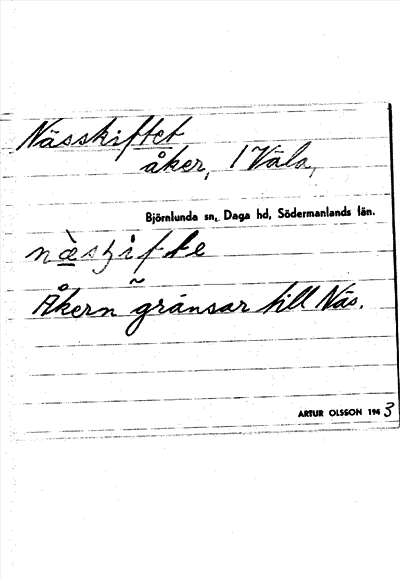 Nässkiftet
åker, 1 Vala,
Björnlunda sn, Daga hd, Södermanlands län.
næsʃifte
Åkern gränsar till Näs.
ARTUR OLSSON 1943